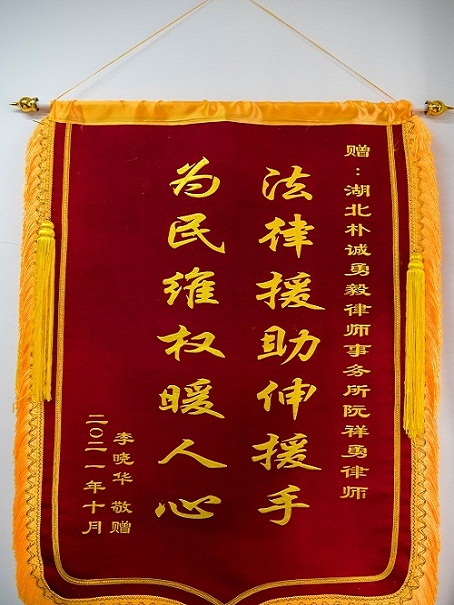 赠：湖北朴诚勇毅律师事务所阮祥勇律师
法律援助伸援手
为民维权暖人心
李晓华 敬赠
二〇二一年十月